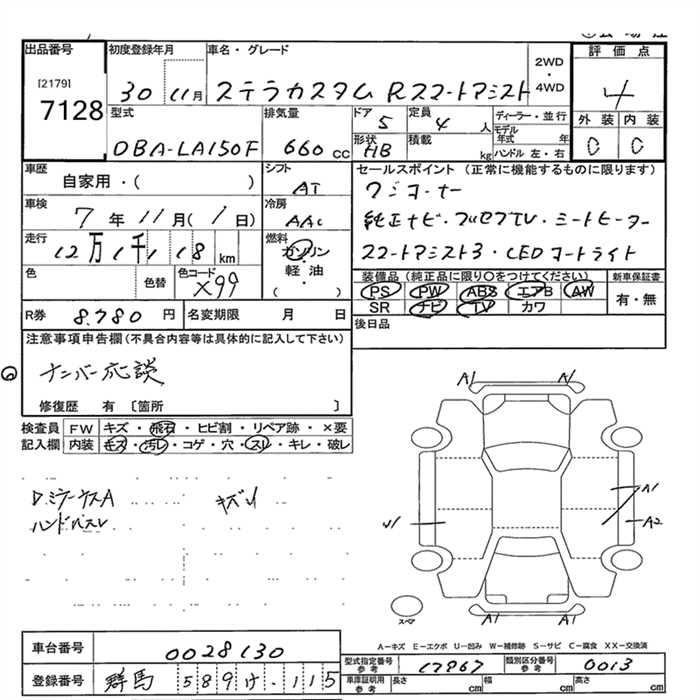 出品番号 初度登録年月 車名・グレード 評価点
[2179] 7128
30 11月 ステラカスタム Rスマートアシスト 2WD・4WD 4
型式 排気量 ドア 5 定員 4 人 ディーラー・並行 外装 内装
DBA-LA150F 660 cc 形状 HB 積載 kg モデル年式 年 ハンドル 左・右 C C
車歴 シフト セールスポイント（正常に機能するものに限ります）
自家用・( ) AT ワンオーナー
車検 7年 11月(1日) 冷房 AAC 純正ナビ・フルセグTV・シートヒーター
走行 12万1千118km 燃料 ガソリン・軽油・( ) スマートアシスト3・LEDヘッドライト
色 色替 色コード X99 装備品（純正品に限り○をつけてください） 新車保証書
PS PW ABS エアB AW 有・無
SR ナビ TV カワ
R券 8,780円 名変期限 月 日 後日品
注意事項申告欄（不具合内容等は具体的に記入して下さい）
ナンバー応談
修復歴 有〔箇所 〕
検査員 FW キズ・飛石・ヒビ割・リペア跡・×要
記入欄 内装 キズ・汚レ・コゲ・穴・スレ・キレ・破レ
DミラーカスA キズ
ハンドルスレ
A1 A1
A1
A2
U1
A1 A1
スペア
A-キズ E-エクボ U-凹み W-補修跡 S-サビ C-腐食 XX-交換済
車台番号 0028130
型式指定番号 参考 17967 類別区分番号 参考 0013
登録番号 群馬 589 け ・115
車庫証明用 参考 長さ cm 幅 cm 高さ cm